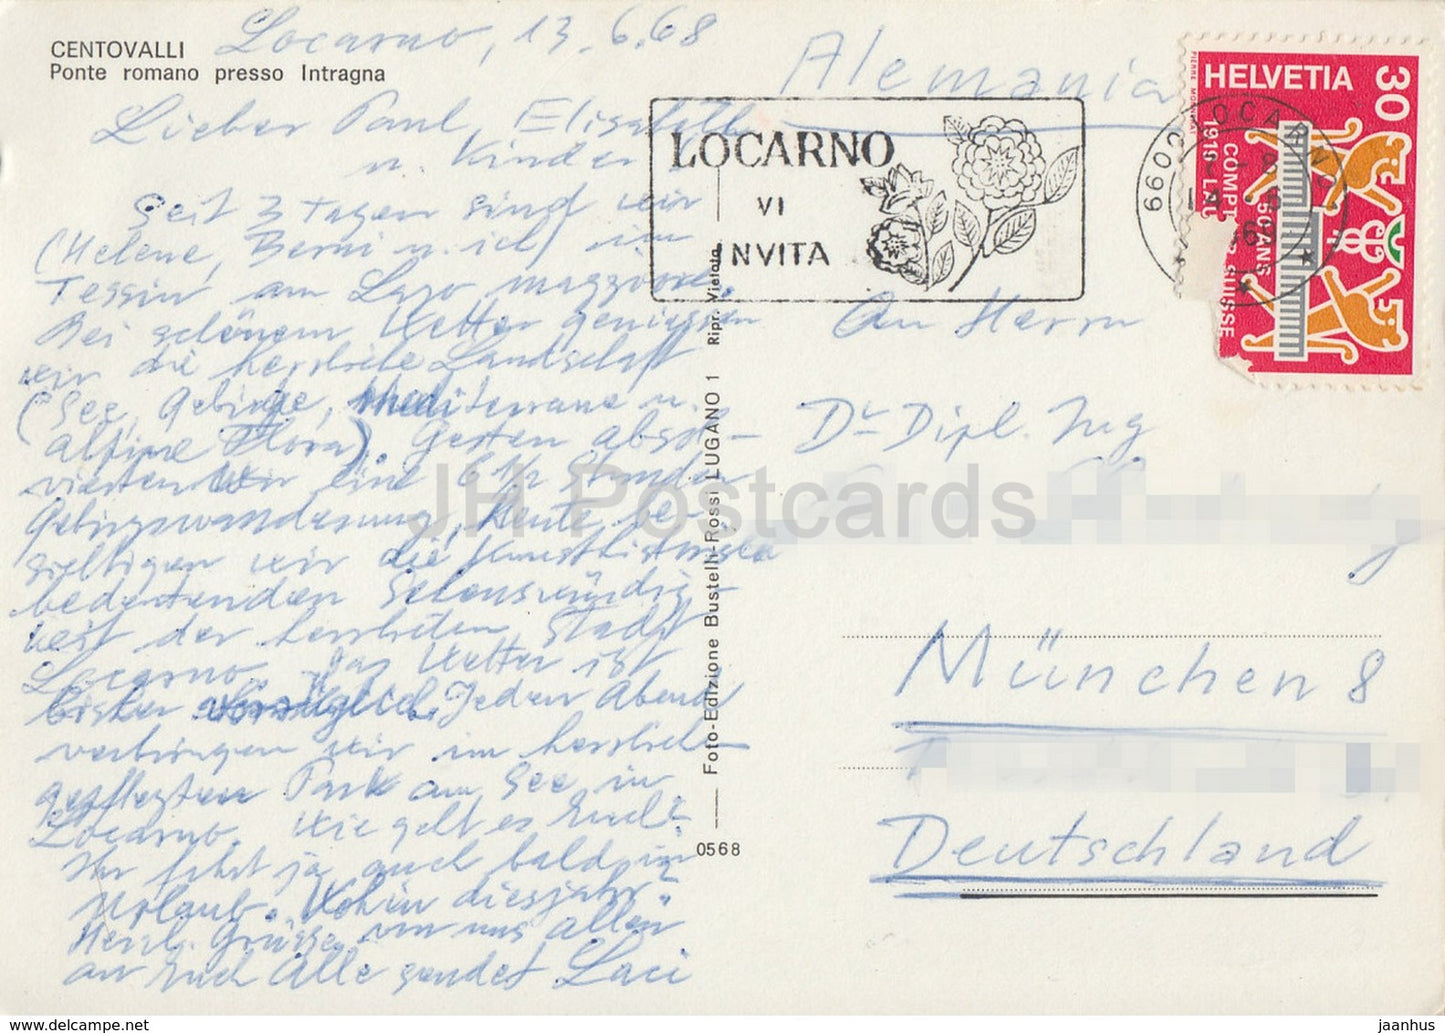 CENTOVALLI
Ponte romano presso Intragna
Locarno, 13.6.68
Lieber Paul, Elisabeth
u. Kinder!
Seit 3 Tagen sind wir
(Helene, Berni u. ich) im
Tessin, am Lago maggiore.
Bei schönem Wetter geniessen
wir die herrliche Landschaft
(See, Gebirge, mediterrane u.
alpine Flora). Gestern absol-
vierten wir eine 6 1/2 Stunden
Gebirgswanderung, Heute be-
sichtigen wir die kunsthistorisch
bedeutenden Sehenswürdig-
keit der herrlichen Stadt
Locarno. Das Wetter ist
bisher vorzüglich. Jeden Abend
verbringen wir im herrlich
gepflegten Park am See in
Locarno. Wie geht es Euch?
Ihr fährt ja auch bald in
Urlaub. Wohin diesjahr?
Herzl. Grüsse von uns allen
an Euch Alle sendet Laci
Foto-Edizione Bustelli-Rossi LUGANO 1 Ripr. Vietata
0568
Alemania
LOCARNO
VI
INVITA
6600 LOCARNO
HELVETIA
30
PIERRE MONNERAT
An Herrn
Dr Dipl. Ing
München 8
Deutschland
JH Postcards
www.delcampe.net
jaanhus